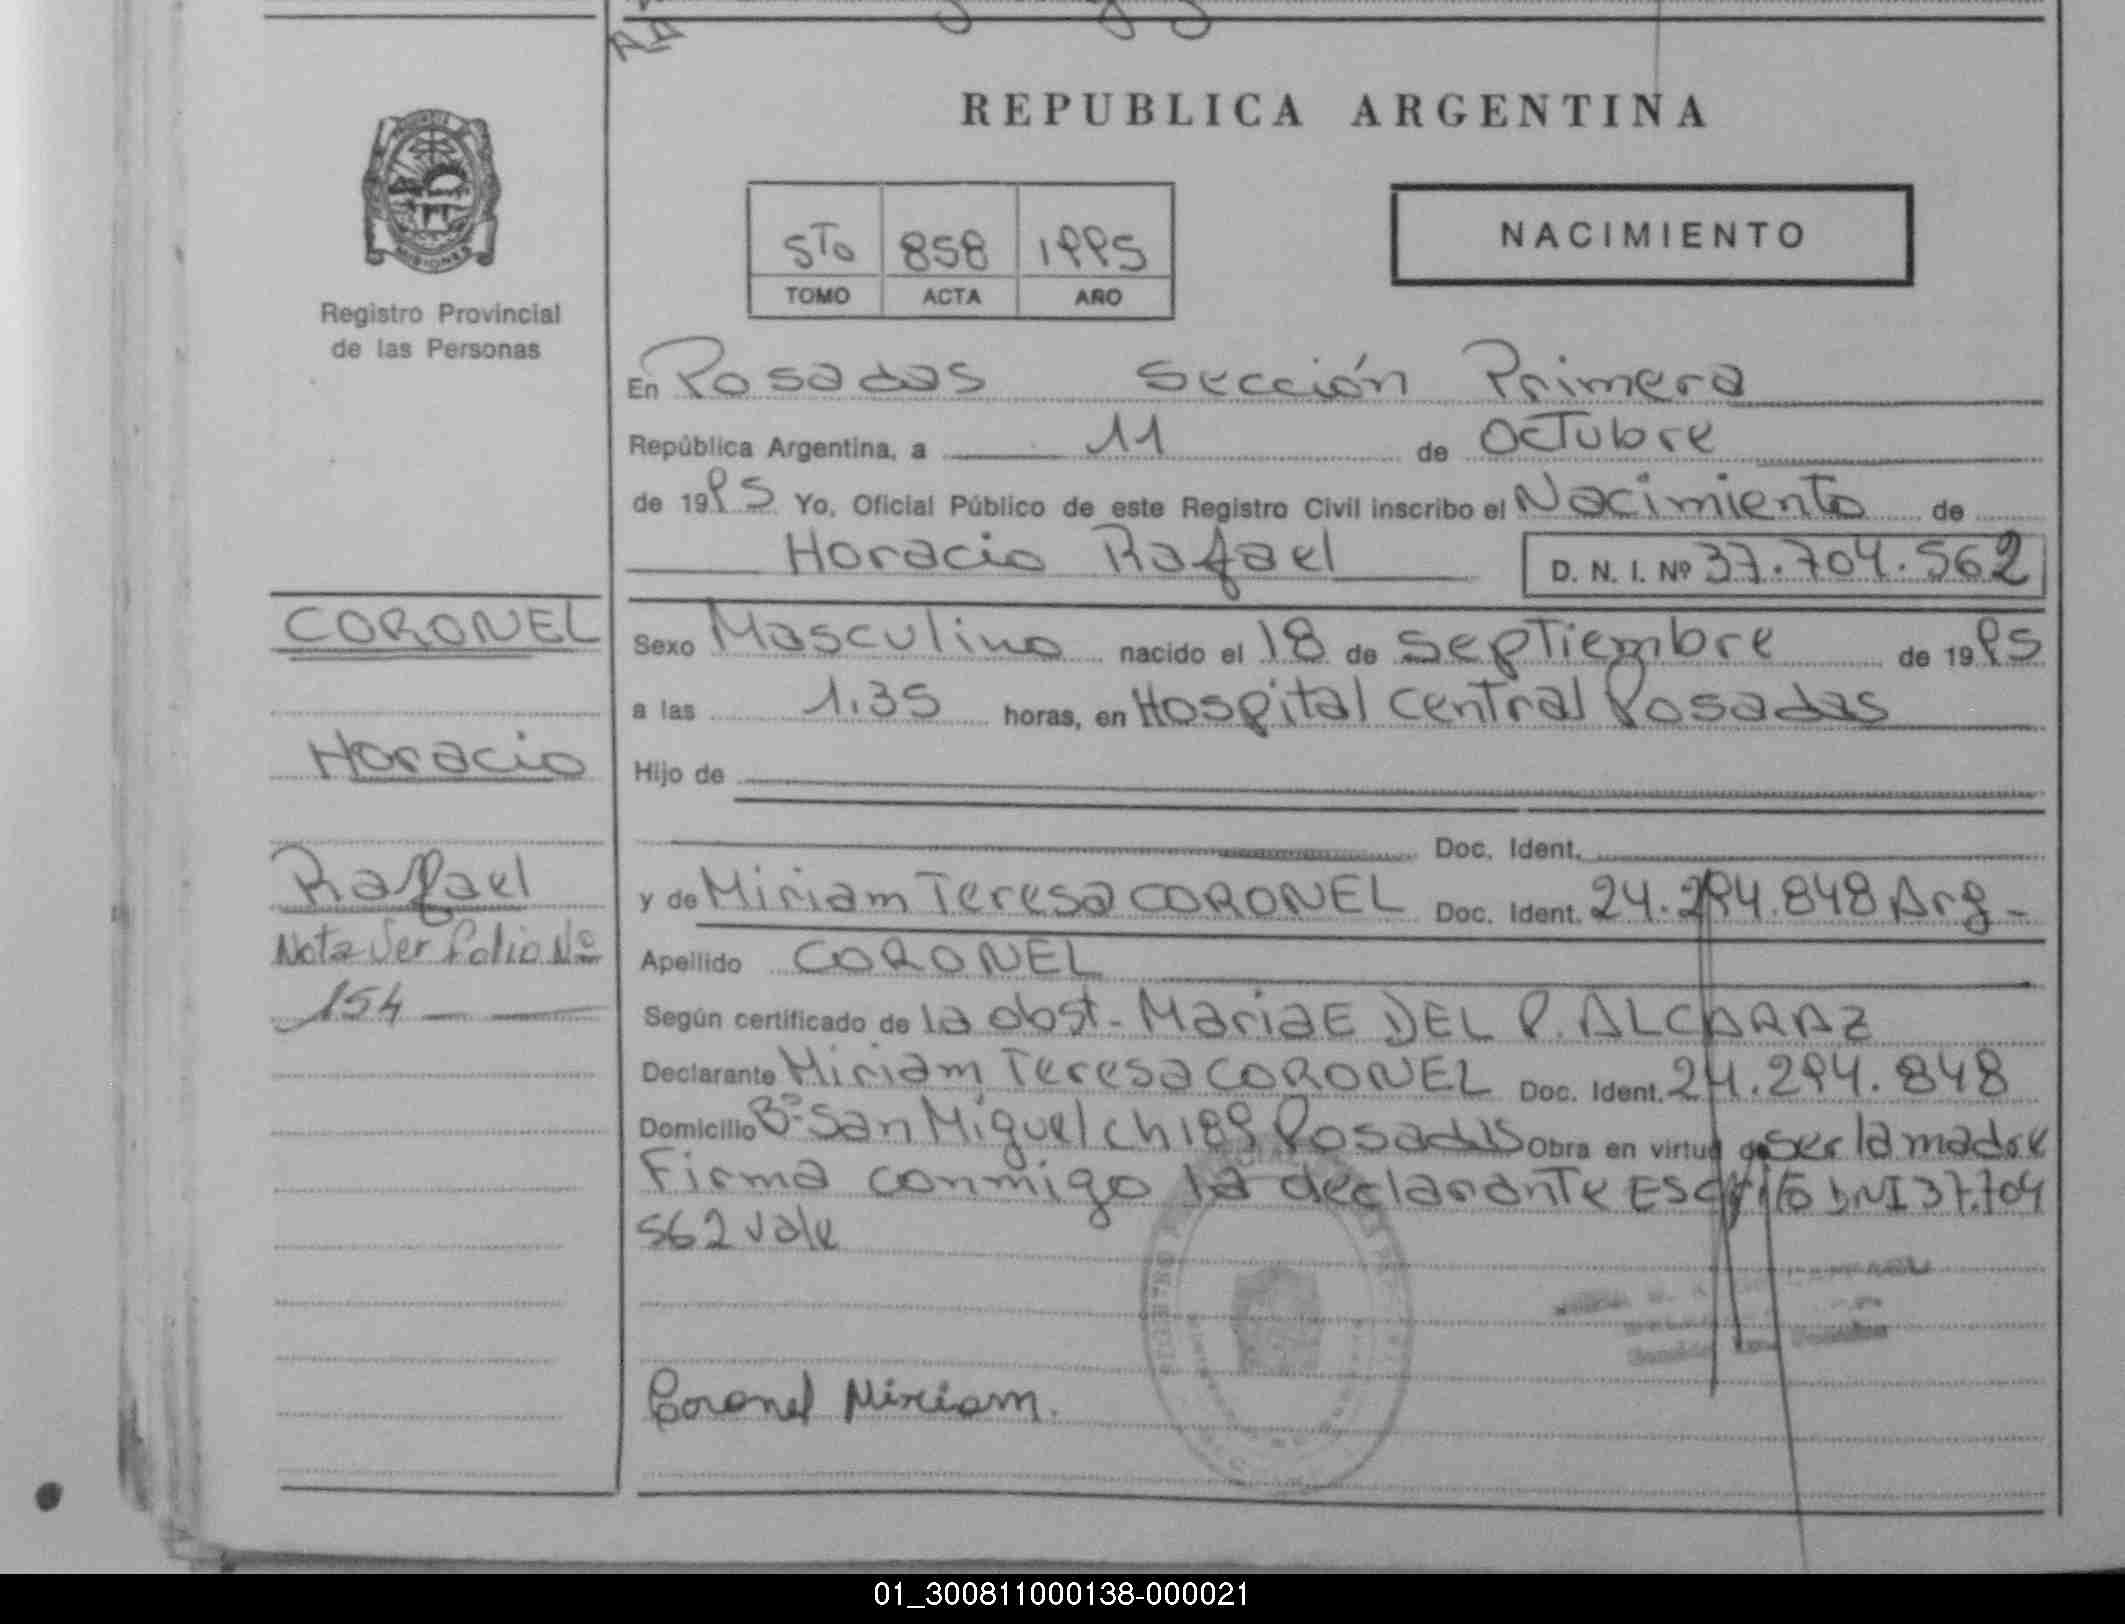 REPUBLICA ARGENTINA
NACIMIENTO
5To 858 1995
TOMO ACTA AÑO
MISIONES
Registro Provincial
de las Personas
En Posadas Sección Primera
República Argentina, a 11 de Octubre
de 1995 Yo, Oficial Público de este Registro Civil inscribo el Nacimiento de
Horacio Rafael D. N. I. Nº 37.704.562
CORONEL
Horacio
Rafael
Nota Ver folio Nº
154
Sexo Masculino nacido el 18 de Septiembre de 1995
a las 1.35 horas, en Hospital Central Posadas
Hijo de
Doc. Ident.
y de Miriam Teresa CORONEL Doc. Ident. 24.294.848 Arg-
Apellido CORONEL
Según certificado de la obst- Maria E DEL P. ALCARAZ
Declarante Miriam Teresa CORONEL Doc. Ident. 24.294.848
Domicilio Bº San Miguel ch 189 Posadas Obra en virtud de ser la madre
Firma conmigo la declarante Escrito DNI 37.704
562 vale
Coronel Miriam.
01_300811000138-000021